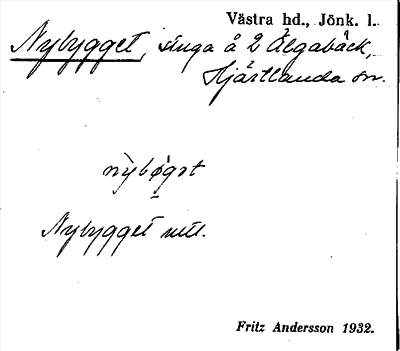 Västra hd., Jönk. l.
Nybygget, stuga å 2 Älgabäck,
Hjärtlanda sn.
nỳbǿgət
Nybygget
Fritz Andersson 1932.